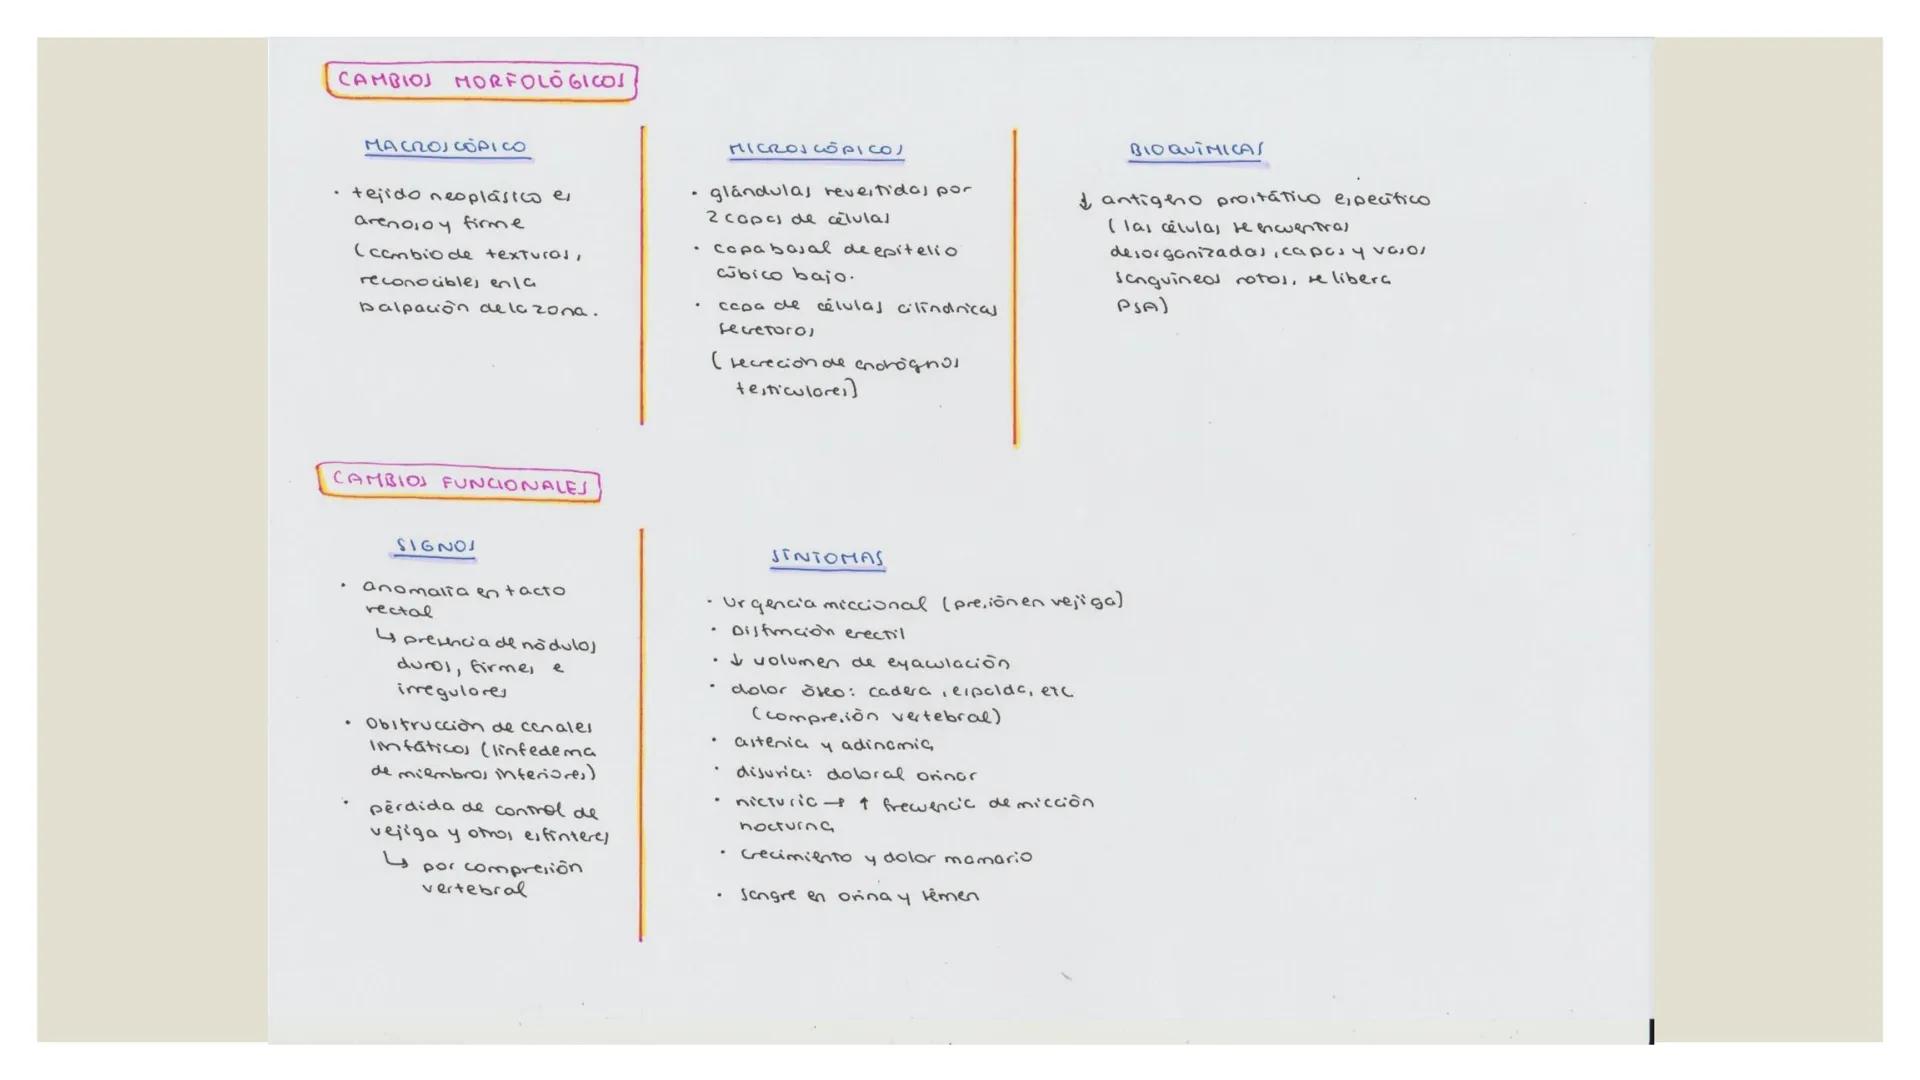 CAMBIOS MORFOLÓGICOS
MACROSCÓPICO
· tejido neoplásico es
arenoso y firme
(cambio de texturas,
reconocibles en la
palpación de la zona.
MICROSCÓPICOS
· glándulas revestidas por
2 capas de células
· capa basal de epitelio
cúbico bajo.
· capa de células cilíndricas
secretoras
(secreción de andrógnos
testiculares)
BIOQUÍMICAS
↓ antígeno prostático específico
(las células se encuentras
desorganizadas, capas y vasos
sanguíneos rotos, se libera
PSA)
CAMBIOS FUNCIONALES
SIGNOS
· anomalía en tacto
rectal
↳ presencia de nódulos
duros, firmes e
irregulares
· Obstrucción de canales
linfáticos (linfedema
de miembros inferiores)
· pérdida de control de
vejiga y otros esfínteres
↳ por compresión
vertebral
SÍNTOMAS
· Urgencia miccional (presión en vejiga)
· Disfunción erectil
· ↓ volumen de eyaculación
· dolor óseo: cadera, espalda, etc
(compresión vertebral)
· astenia y adinamia
· disuria: dolor al orinar
· nicturia → ↑ frecuencia de micción
nocturna
· crecimiento y dolor mamario
· sangre en orina y sémen